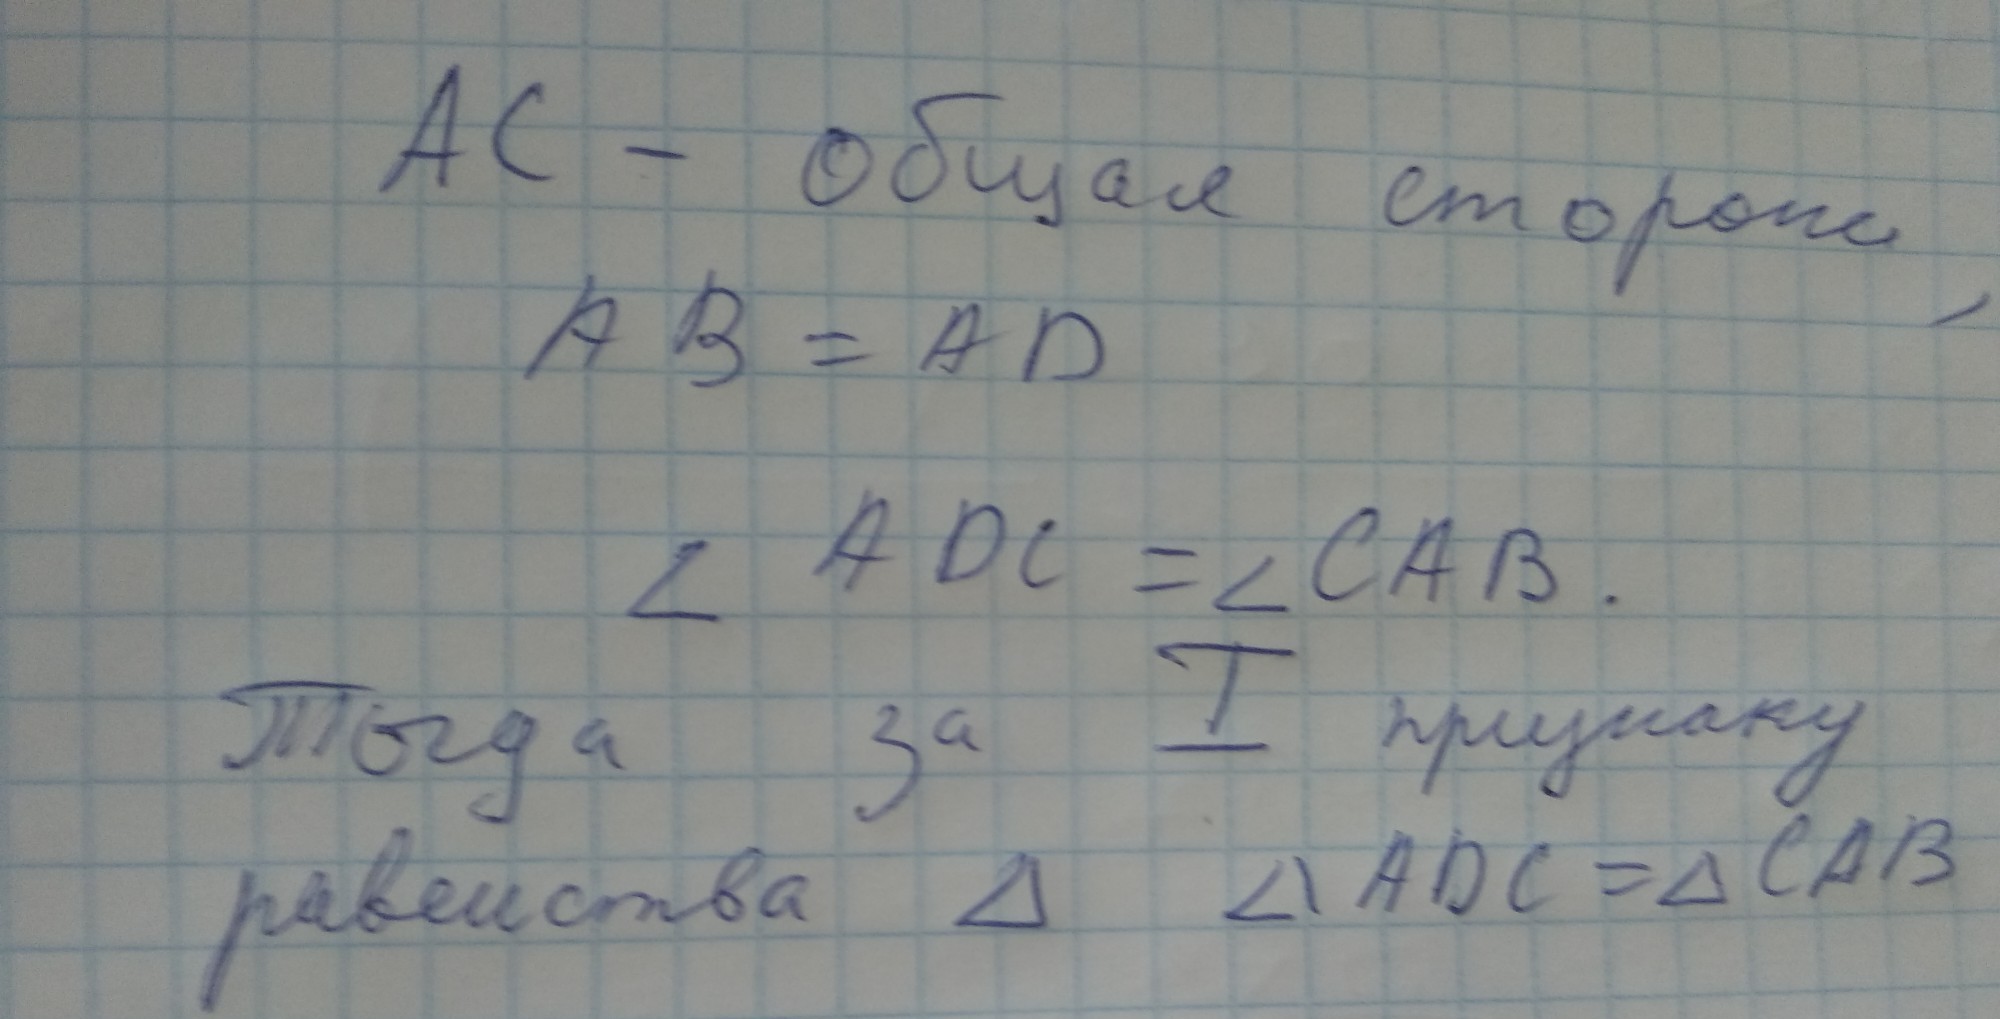 AC - общая сторона,
AB = AD
∠ ADC = ∠CAB.
Тогда за I признаку
равенства Δ ΔADC = ΔCAB